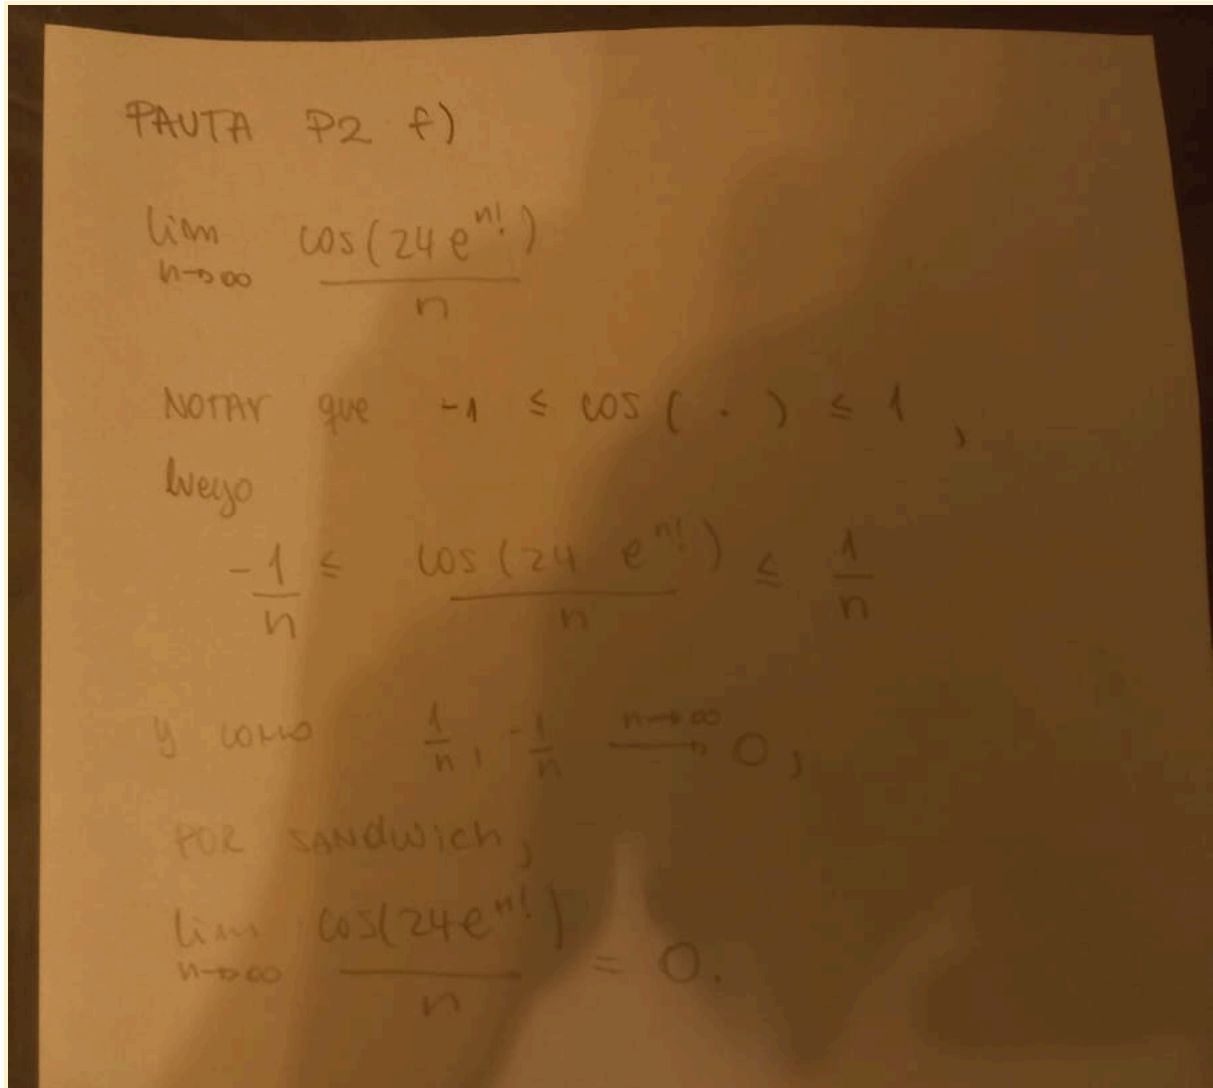 PAUTA P2 f)
lim n→∞ cos(24 e^{n!}) / n
NOTAR que -1 ≤ cos( · ) ≤ 1 ,
luego
-1/n ≤ cos(24 e^{n!}) / n ≤ 1/n
y como 1/n, -1/n n→∞ → 0 ,
POR SANDWICH,
lim n→∞ cos(24e^{n!}) / n = 0.